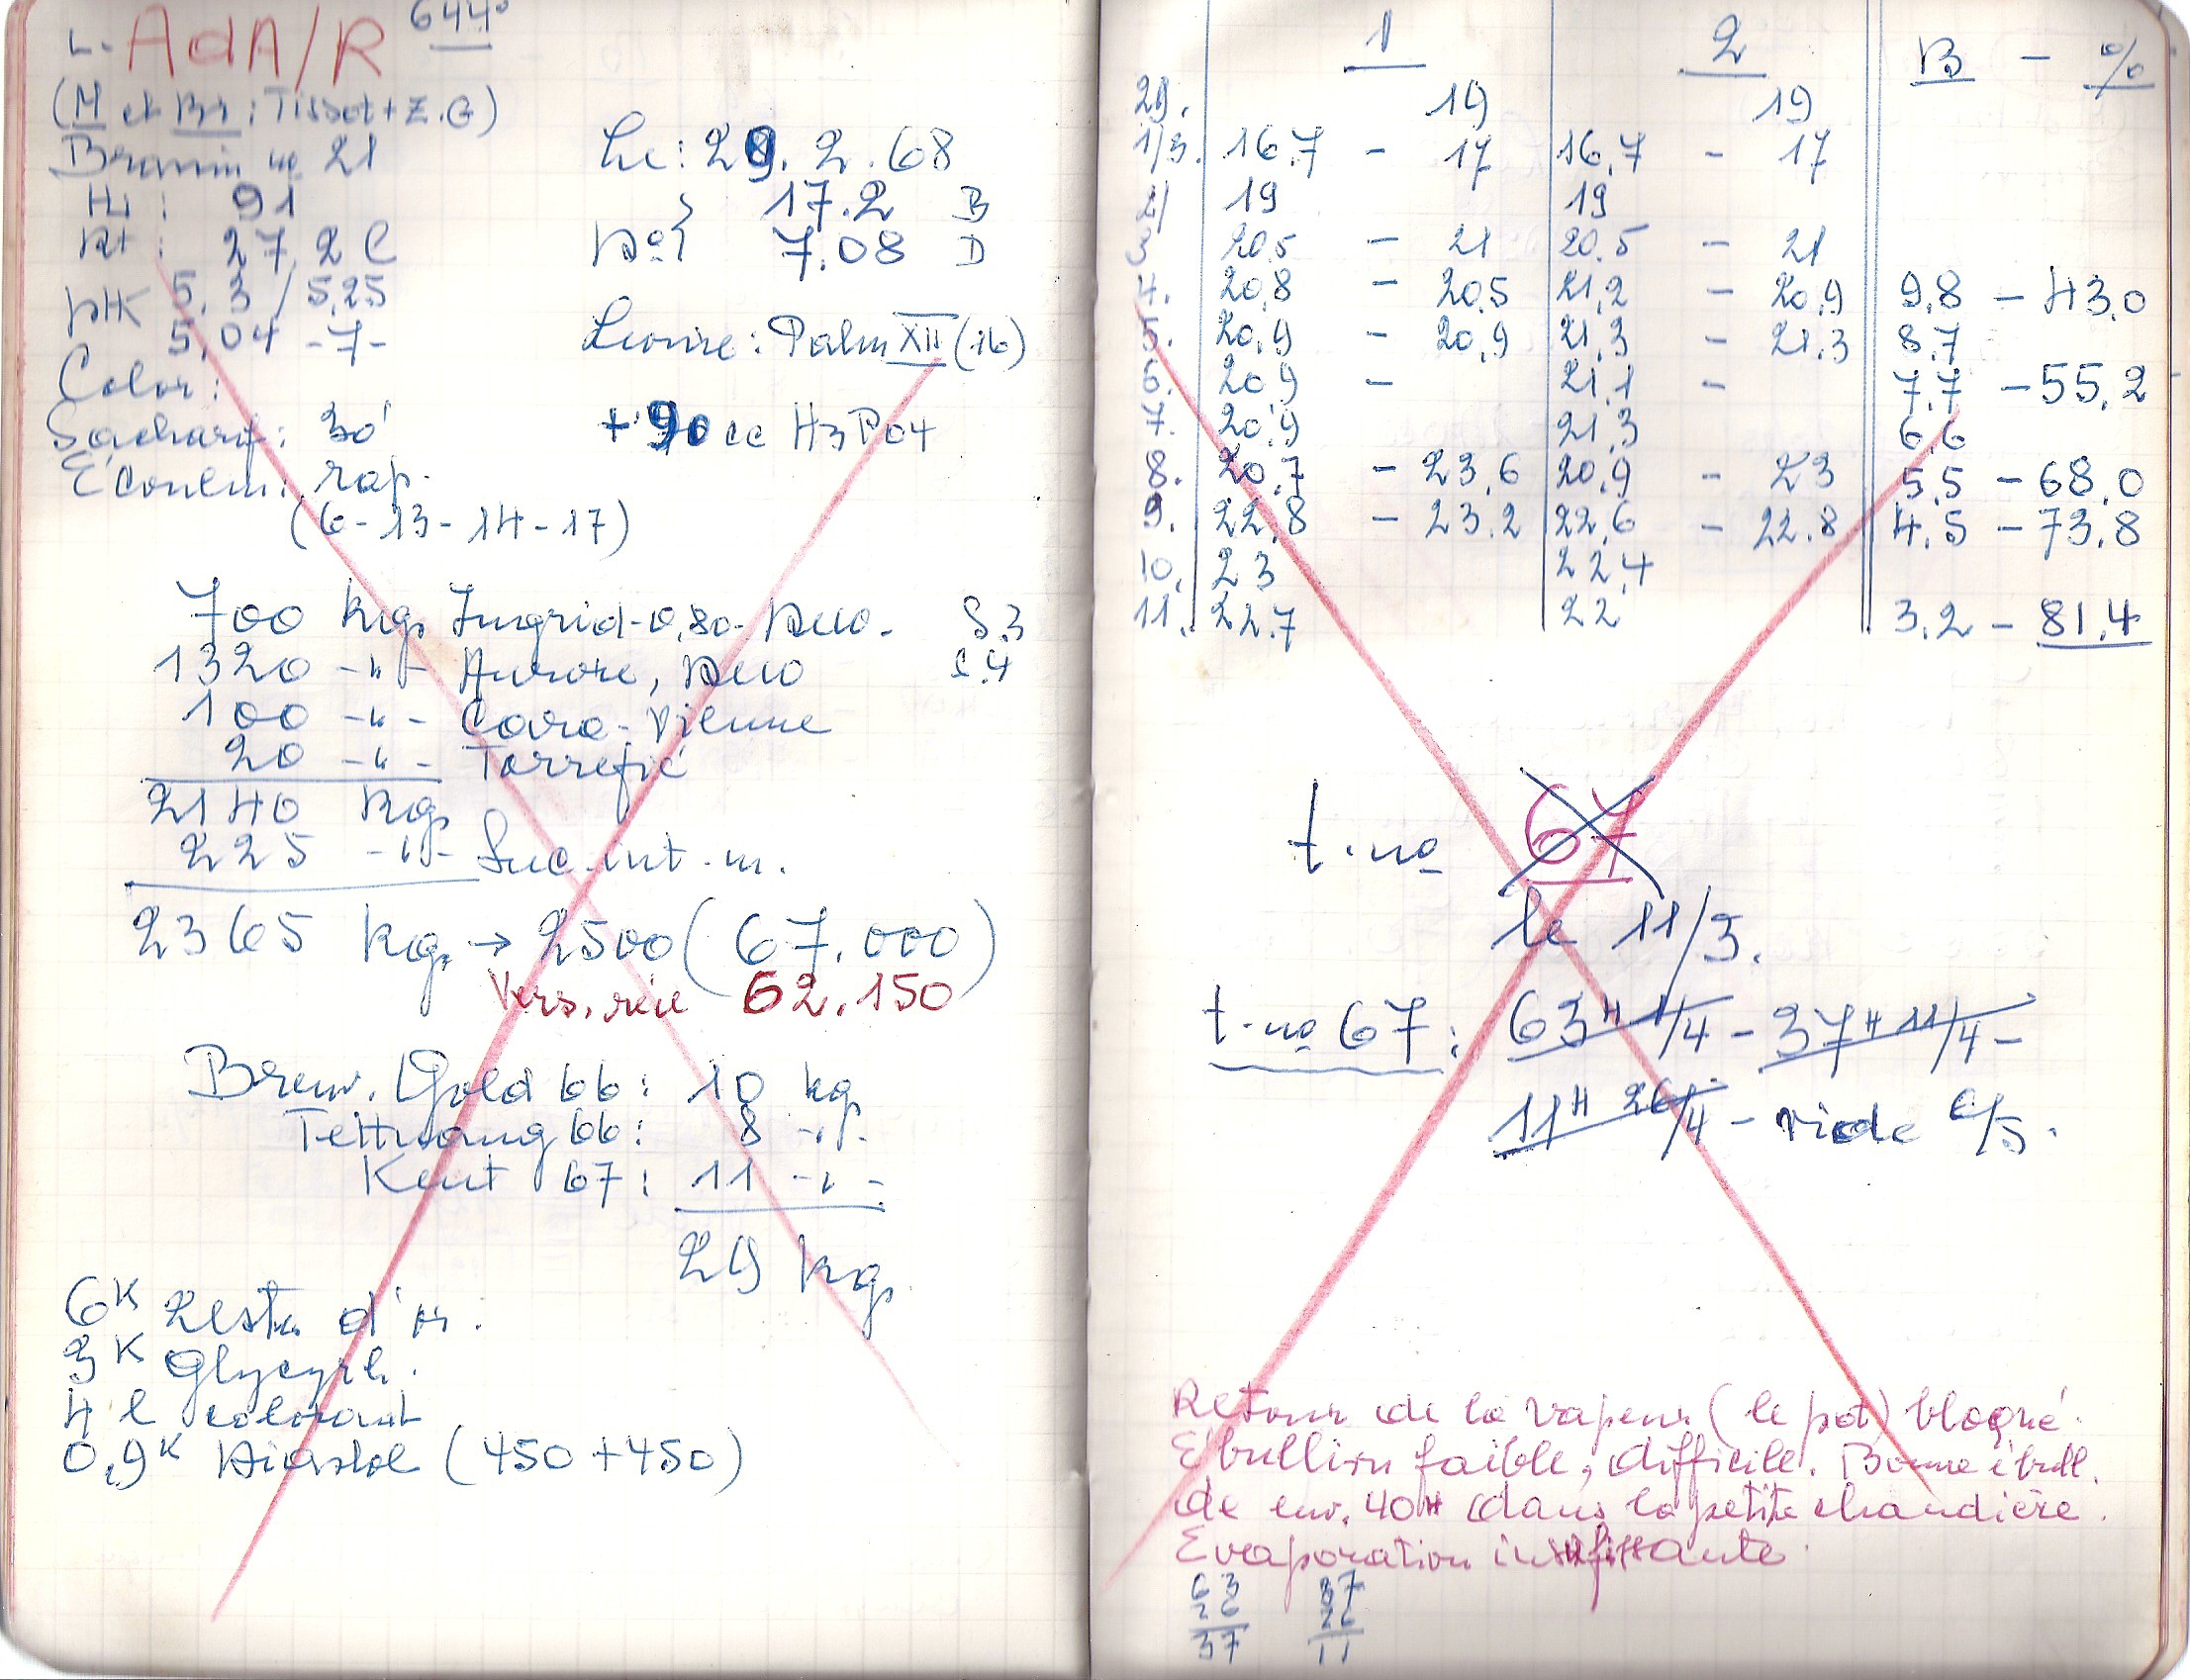 L. AdA/R 644°
(M et Br : Tissot + Z.G)
Brassin no 21
Le : 29. 2. 68
Hl : 91
17.2 B
27.2 C
7.08 D
pH 5.3 / 5,25
5,04 -7-
Levure : Palm XII (16)
Color :
Sacharif : 30'
+ 90 cc H3PO4
Écoulem : rap.
(6 - 13 - 14 - 17)
700 kgs Ingrid - 0,80 - S.3
1320 -"- Aurore, S.4
100 -"- Cara-Vienne
20 -"- Torréfié
2140 kgs
225 -"- Suc. int. m.
2365 kgs → 2500 (67.000)
Vers. réel 62.150
Brew. Gold 66 : 10 kgs
Tettnang 66 : 8 -"-
Kent 67 : 11 -"-
29 kgs
6K Zeste d'or.
3K Glycyrh.
4 l colorant
0,9K Diastol (450 + 450)
1 2 B - %
29. 19 19
1/3. 16.7 - 17 16,7 - 17
2/ 19 19
3/ 20.5 - 21 20.5 - 21
4. 20,8 - 20,5 21,2 - 20,9 9,8 - 43,0
5. 20,9 - 20,9 21,3 - 21.3 8.7
6. 20,9 - 21,1 - 7.7 - 55,2
7. 20,9 21,3 6,6
8. 20,7 - 23,6 20,9 - 23 5,5 - 68,0
9. 22,8 - 23,2 22,6 - 22.8 4.5 - 73,8
10. 23 22,4
11. 22.7 22 3.2 - 81,4
t. no 67
le 11/3.
t. no 67 : 63H 1/4 - 37H 11/4 -
11H 26/4 - vide 6/5.
Retour de la vapeur (le pot) bloqué.
Ébullion faible, difficile. Bonne ébull.
de env. 40H dans la petite chaudière.
Evaporation insuffisante.
63 37
26 26
37 11